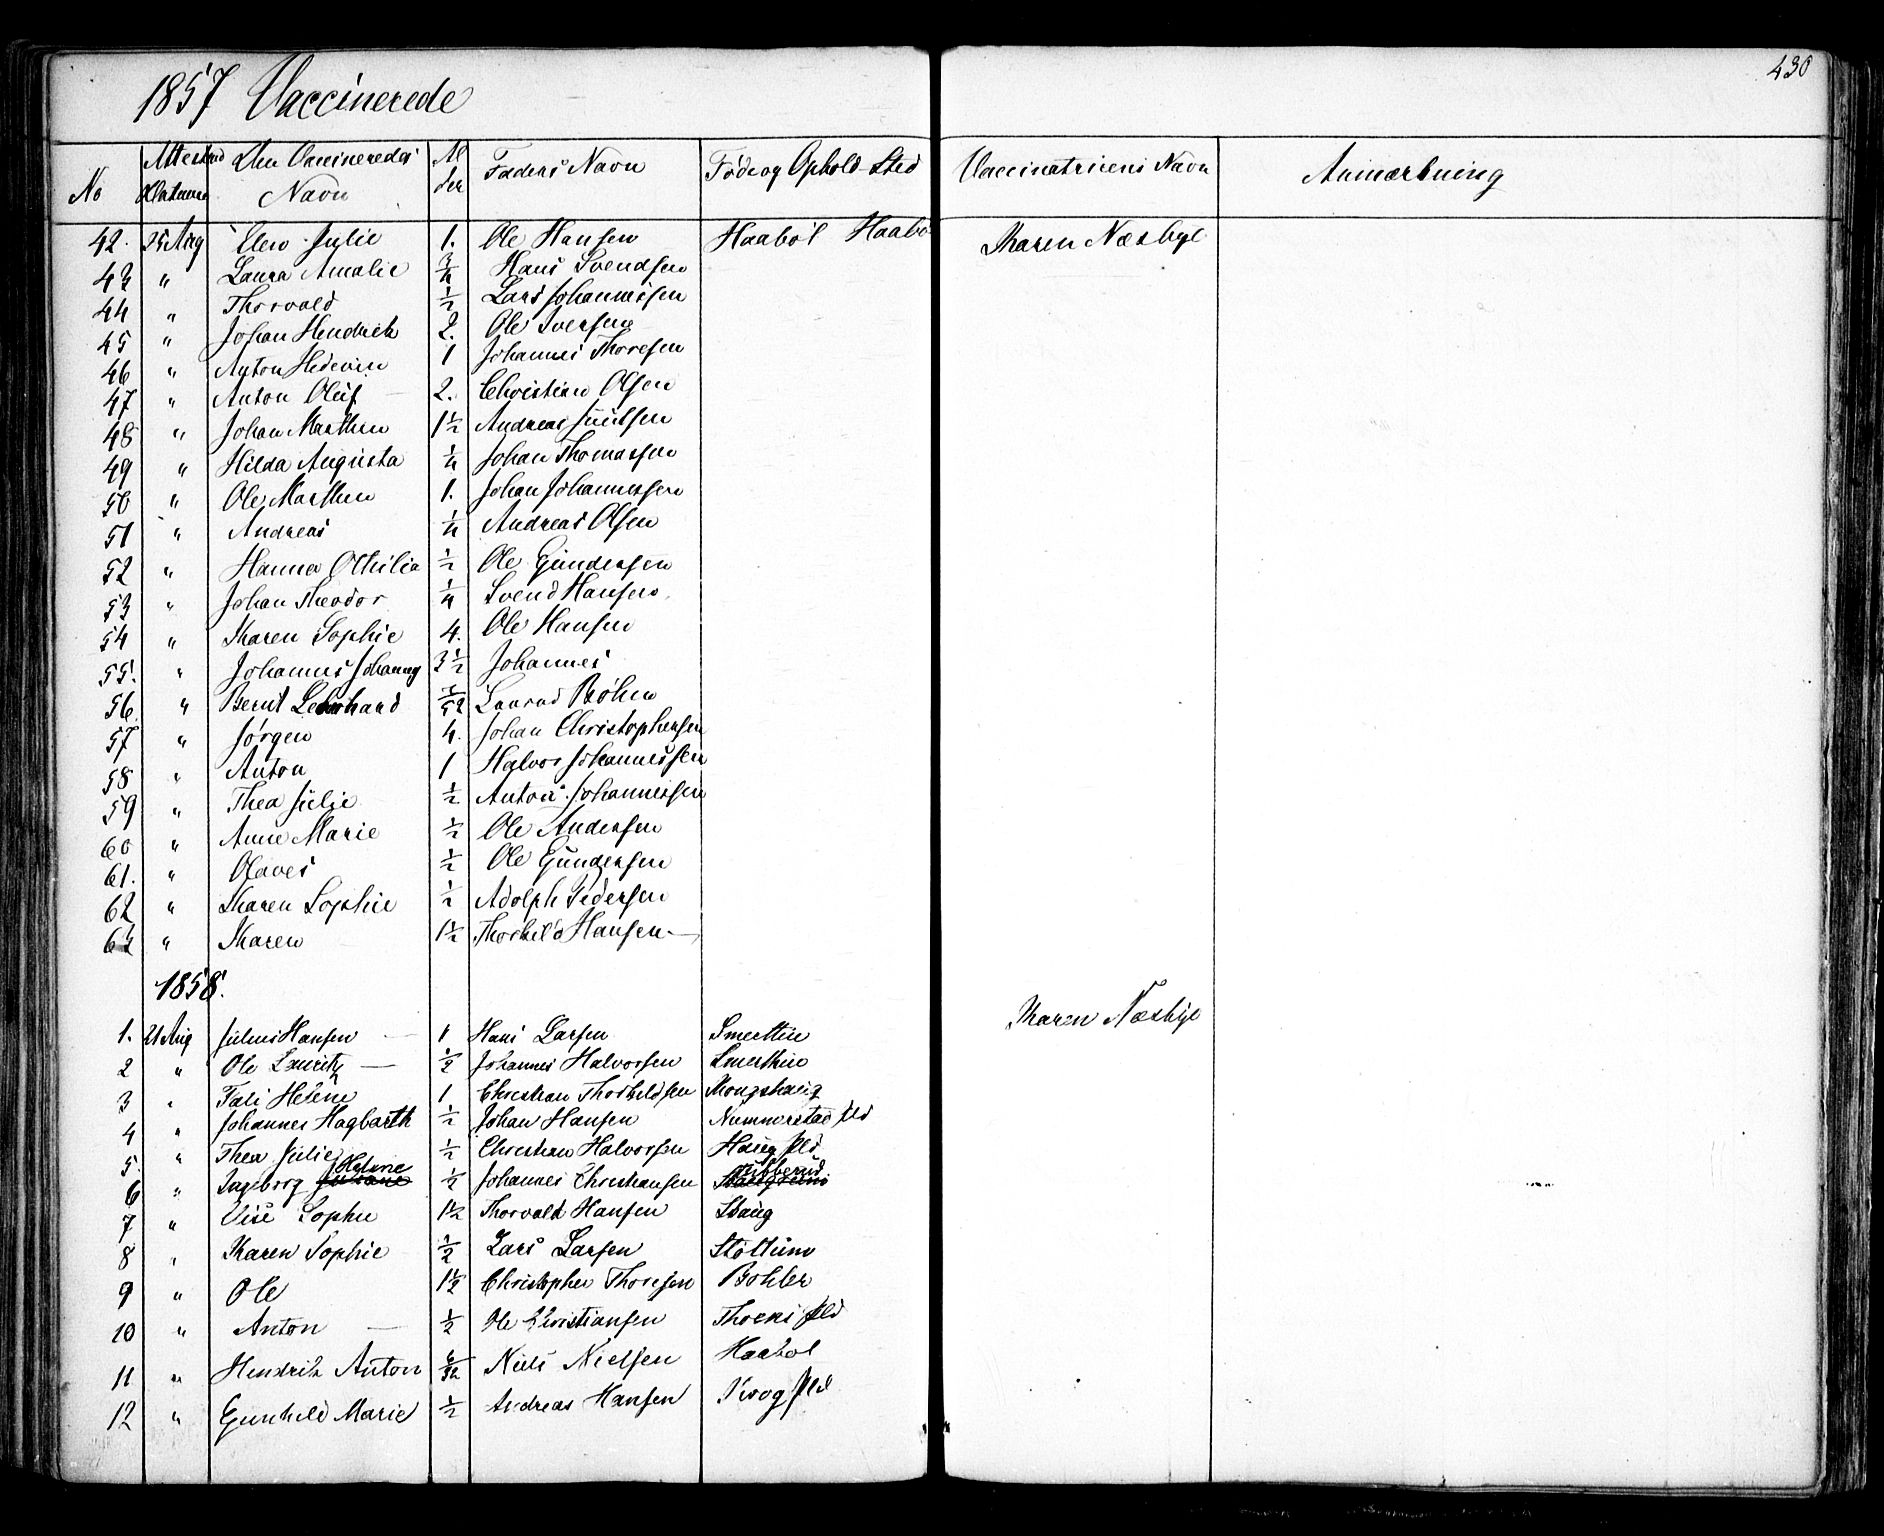 430
1857 Vaccinerede
No Attestens Datum Den Vaccineredes Navn Alder Faders Navn Føde og Ophold-Sted Vaccinatricens Navn Anmærkning
42. 25 Aug Elen Julie 1. Ole Hansen Haabøl Haabø Karen Næsbye
43 " Laura Amalie 3/4 Hans Svendsen
44 " Thorvald 1/2 Lars Johannessen
45 " Johan Hendrik 2. Ole Iversen
46 " Anton Hedevin 1 Johannes Thoresen
47 " Anton Oluf 2. Christian Olsen
48 " Johan Marthin 1 1/2 Andreas
49 " Hilda Augusta 1/4 Johan Thomassen
50 " Ole Marthin 1. Johan Johannessen
51 " Andreas 1/4 Andreas Olsen
52 " Hanna Othilia 1/2 Ole Gundersen
53 " Johan Theodor 1/4 Svend Hansen
54 " Karen Sophie 4. Ole Hansen
55. " Johannes 3 1/2 Johannes
56. " Bernt Leonhard /52 Bøhn
57 " Jørgen 4. Johan Christophersen
58 " Anton 1 Halvor Johannessen
59 " Thea Julie 1/2 Anton Johannessen
60 " Anne Marie 1/2 Ole Andersen
61. " Olaves 1/2 Ole Gundersen
62 " Karen Sophie 1/2 Adolph Pedersen
63 " Karen 1 1/2 Thorkild Hansen
1858.
1. 21 Aug Julius Hansen 1 Hans Larsen Smertun Karen Næsbye
2 " Ole Lauritz 1/2 Johannes Halvorsen Smerthun
3 " Helene 1 Christian Thorkildsen Kongshaug
4 " Johannes Hagbarth 1/2 Johan Hansen Nummestad Pld
5. " Thea Julie 1/2 Christian Halvorsen Haug Pld
6 " Ingeborg Helene 1/2 Johannes Christiansen Stubberud
7 " Sophie 1 1/2 Thorvald Hansen Skaug
8 " Karen Sophie 1/2 Lars Larsen Støttum
9 " Ole 1 1/2 Christopher Thoresen Bohler
10 " Anton 1/2 Ole Christiansen Pld
11 " Hendrik Anton 6/52 Niels Nielsen Haabøl
12 " Gunhild Marie 1/2 Andreas Hansen Krog Pld